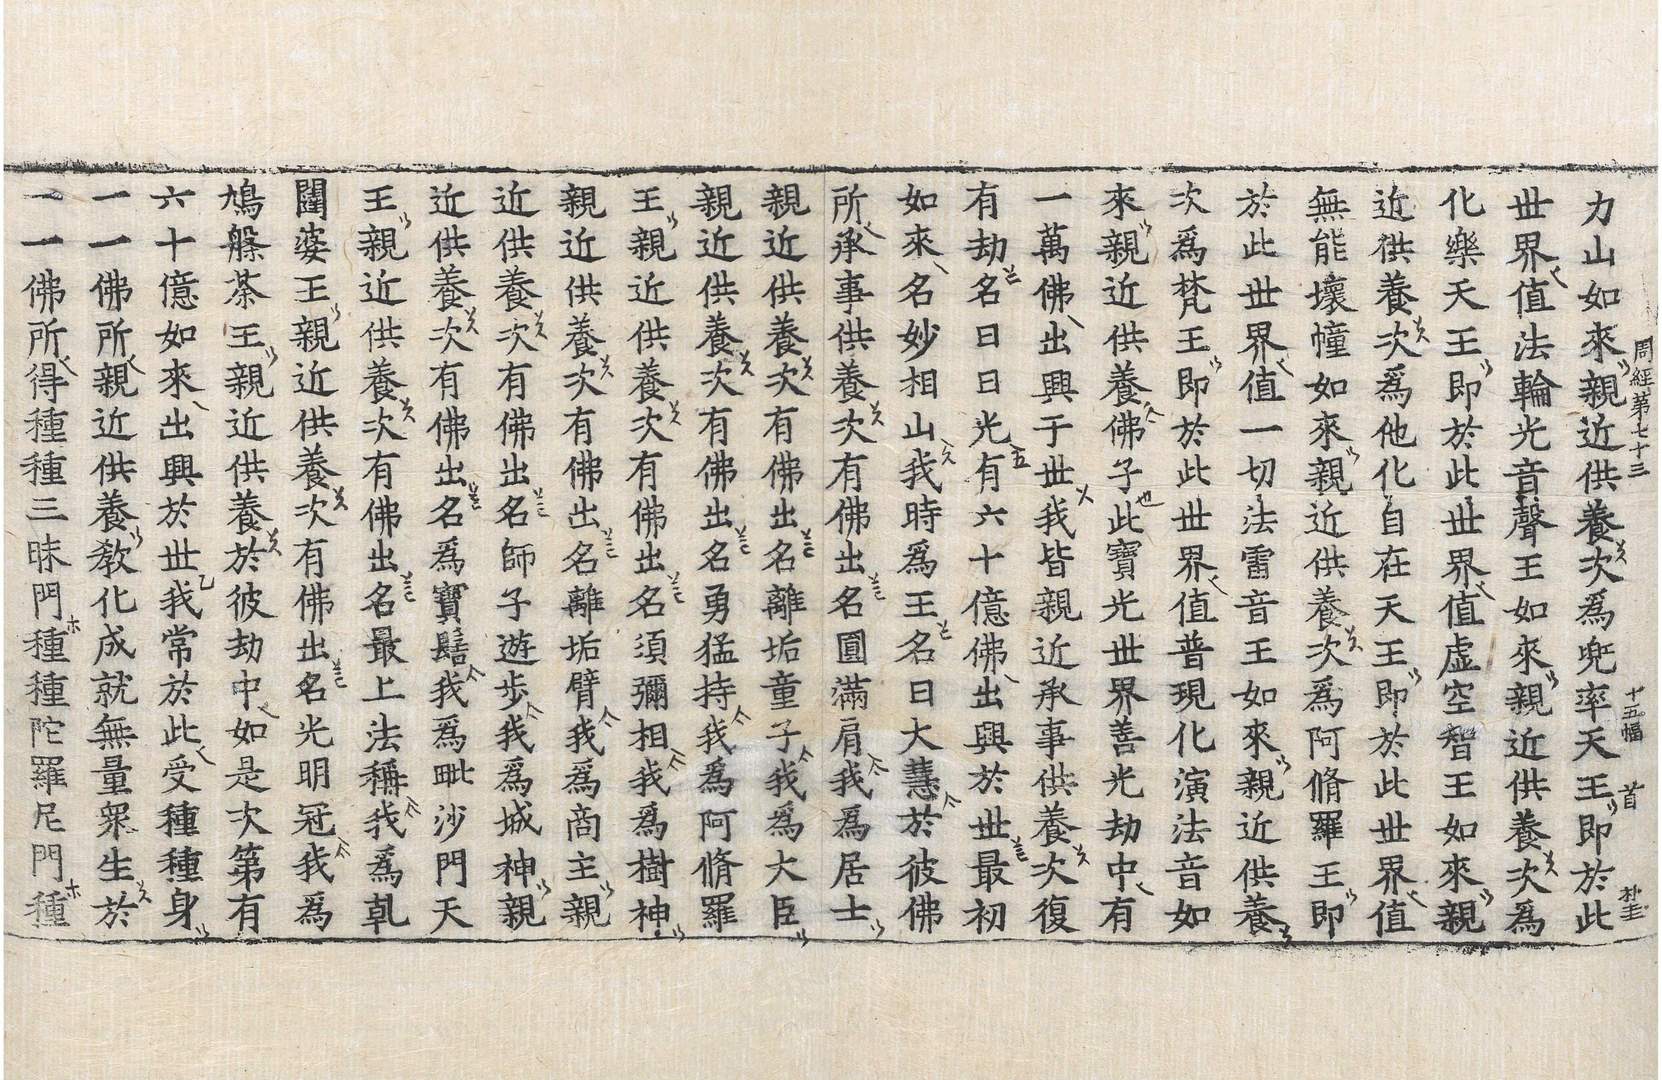 周經第七十三 十五幅 首 朴圭
力山如來親近供養次爲兜率天王即於此
世界值法輪光音聲王如來親近供養次爲
化樂天王即於此世界值虛空智王如來親
近供養次爲他化自在天王即於此世界值
無能壞幢如來親近供養次爲阿脩羅王即
於此世界值一切法雷音王如來親近供養
次爲梵王即於此世界值普現化演法音如
來親近供養佛子此寶光世界善光劫中有
一萬佛出興于世我皆親近承事供養次復
有劫名曰日光有六十億佛出興於世最初
如來名妙相山我時爲王名曰大慧於彼佛
所承事供養次有佛出名圓滿肩我爲居士
親近供養次有佛出名離垢童子我爲大臣
親近供養次有佛出名勇猛持我爲阿脩羅
王親近供養次有佛出名須彌相我爲樹神
親近供養次有佛出名離垢臂我爲商主親
近供養次有佛出名師子遊步我爲城神親
近供養次有佛出名爲寶髻我爲毗沙門天
王親近供養次有佛出名最上法稱我爲乹
闥婆王親近供養次有佛出名光明冠我爲
鳩槃茶王親近供養於彼劫中如是次第有
六十億如來出興於世我常於此受種種身
一一佛所親近供養教化成就無量衆生於
一一佛所得種種三昧門種種陀羅尼門種